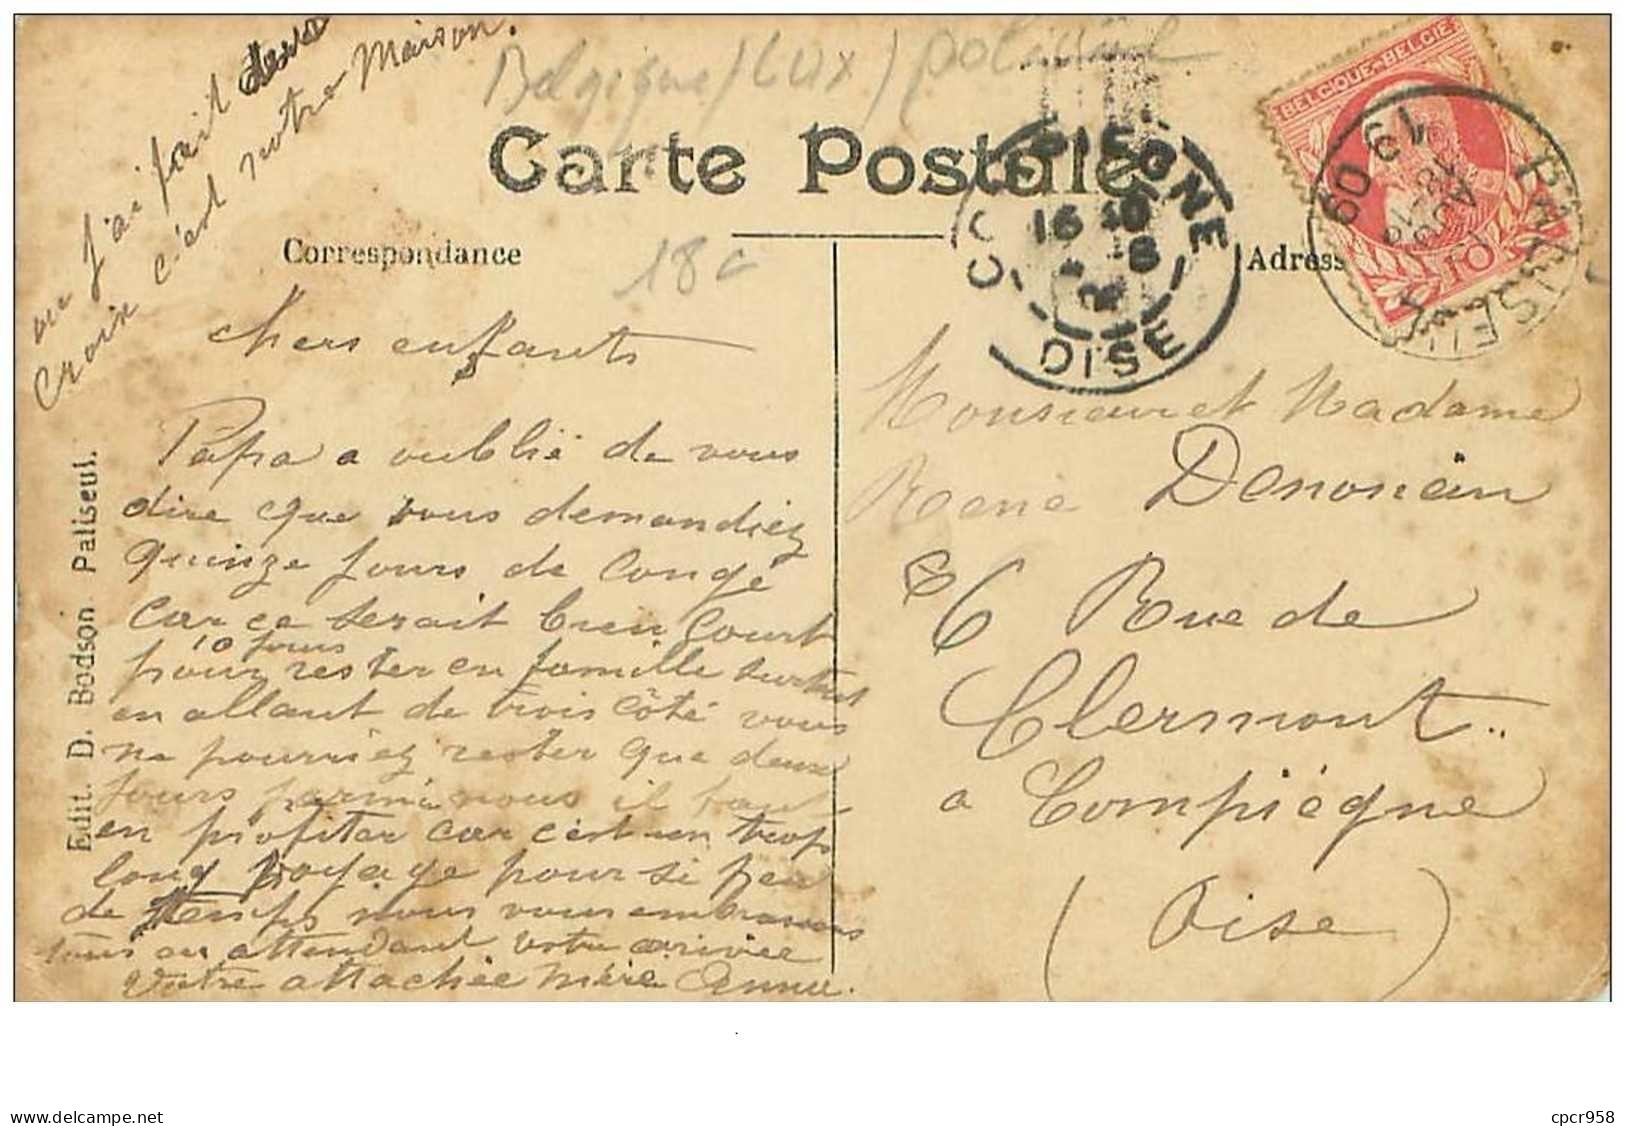 ou j'ai fait
Croix c'est notre Maison.
Belgique / Lux )
Carte Postale
Correspondance
18 c
Adress
BELGIQUE-BELGIE
10
PALISEUL
18-19
AOU
19 09
COMPIEGNE
16 40
OISE
Edit. D. Bodson Paliseul.
Chers enfants
Papa a oublié de vous
dire que vous demandiez
quinze jours de congé
car ce serait bien court
10 jours
pour rester en famille surtout
en allant de trois côté vous
ne pourriez rester que deux
jours parmi nous il faut
en profiter car c'est un trop
long voyage pour si peu
de temps nous vous embrassons
tous en attendant votre arrivée
Votre attachée mère Annie.
Monsieur et Madame
René
6 Rue de
Clermont
a Compiégne
( Oise )
cpcr958
www.delcampe.net